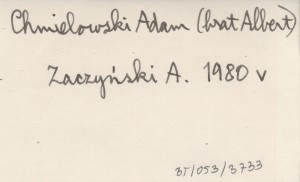 Chmielowski Adam (brat Albert)
Zaczyński A. 1980 v
BJ/053/3733